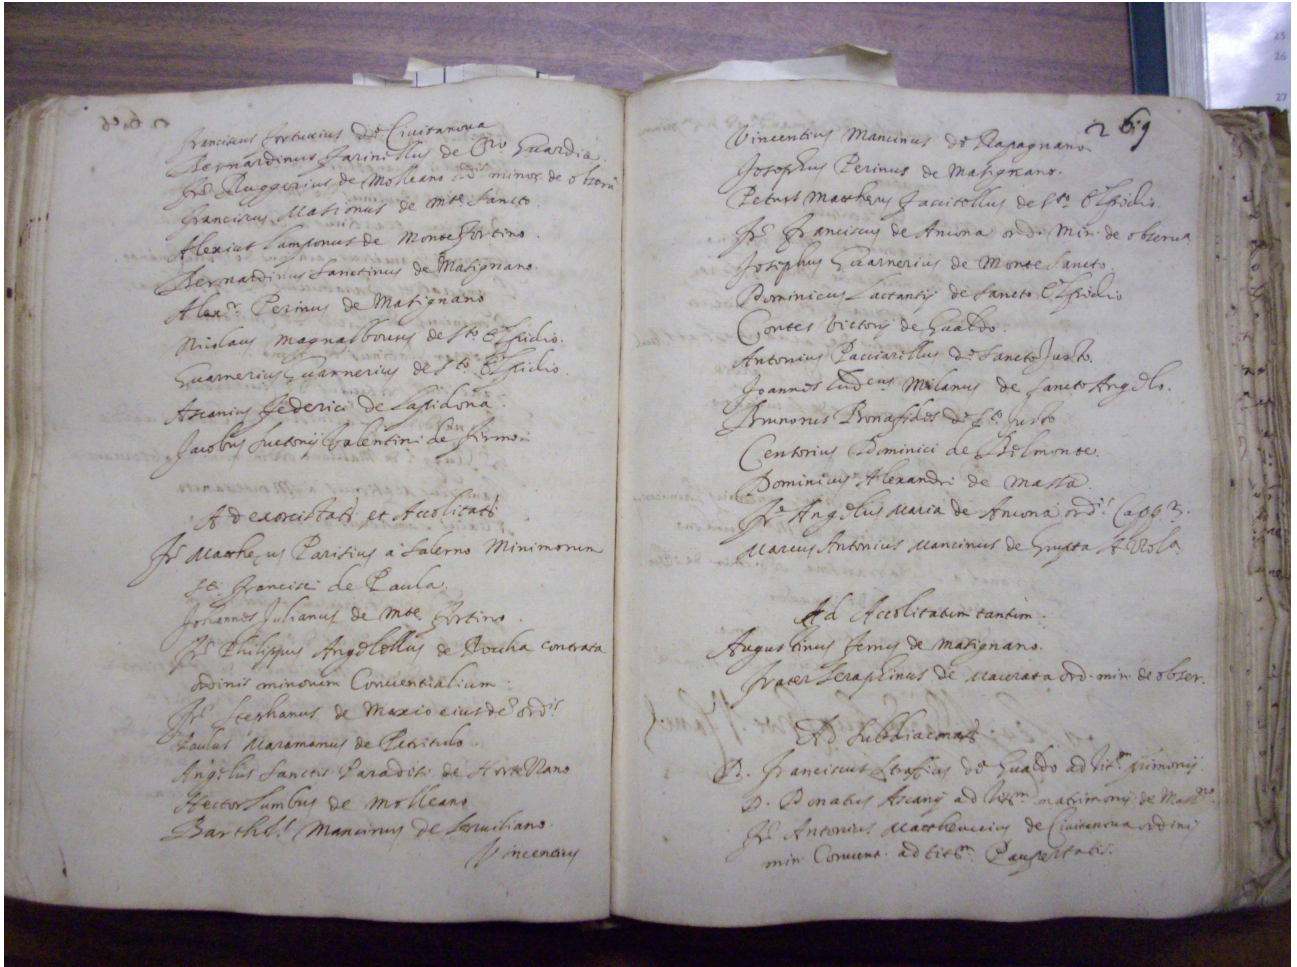 Franciscus Fortunius de Civitanova
Bernardinus Farinellus de Guardia
Fr. Ruggerius de Molleano minor. de observ.
Franciscus Mationus de Mte Sancto.
Alexius Lamponus de Monte Fortino.
Bernardinus Sanctinus de Matignano.
Alexr. Perinus de Matignano
Nicolaus Magnalbouus de Sto Elpidio.
Guarnerius Guarnerius de Sto Elpidio.
Ascanius Federici de Lapidona
Jacobus Valentini de Firmo
Ad exorcistatū et Accolitatū
Fr. Mattheus Parisius a Salerno Minimorum
St. Francisci de Paula.
Johannes Julianus de Mte Fortino.
Fr. Philippus Angelellus de Roccha contrata
ordinis minorum Conventialium.
Fr. Stephanus de eiusdē ordis
Paulus Maramanus de Petritulo.
Angelus Sanctis Paradisi de Hortezzano
Hector Lumbus de Molleano
Barthol. Mancinus de Serviliano.
Vincentius
269
Vincentius Mancinus de Rapagnano.
Josephus Perinus de Matignano.
Petrus Mattheus de Sto Elpidio.
Fr. Franciscus de Ancona ord. Min. de observa
Josephus Guarnerius de Monte Sancto.
Dominicus Lactantij de Sancto Elpidio
Contes Victorij de Gualdo.
Antonius Pacciarillus de Sancto Justo.
Joannes Milanus de Sancto Angelo.
Brunorus Bonafides de Sto Justo
Centorius Dominici de Belmonte.
Dominicus Alexandri de Massa.
Fr. Angelus Maria de Ancona ord.
Marcus Antonius Mancinus de Azzola.
Ad Accolitatum tantum.
Augustinus de Matignano.
Frater Seraphinus de Macerata ord. min. de obser.
Ad Subdiaconatū
D. Franciscus de Gualdo ad tit.
D. Donatus Ascanij ad titm. matrimonij de
Fr. Antonius Mattheuccius de Civitanova ordinis
min. Convent. ad titm. Paupertatis.